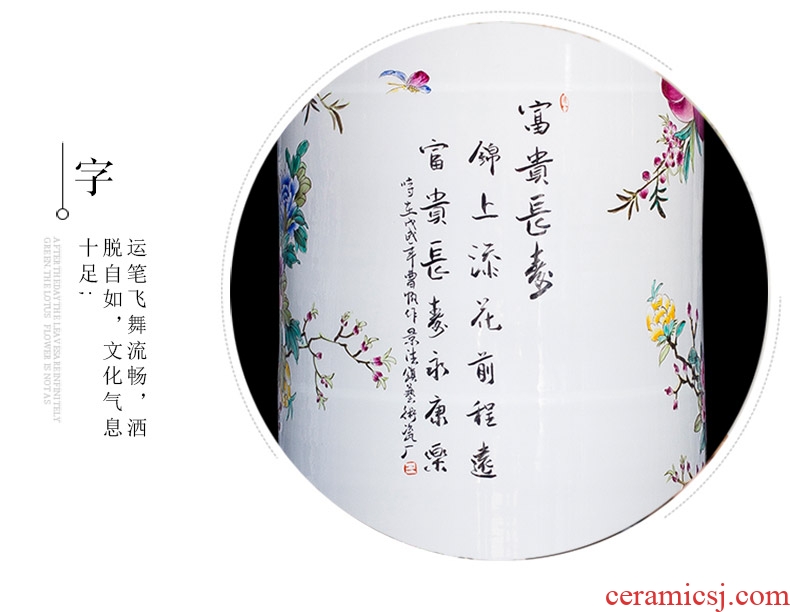 字
运笔飞舞流畅，洒
脱自如，文化气息
十足..
AFTER THEDAY THE LEAVES& BEINFINITELY
GREEN. THE LOTUS FLOWER IS NOT AS
富貴長壽
錦上添花前程遠
富貴長壽永康樂
時在戊戌年曹帆作景德鎮藝術瓷厂
ceramicsj.com